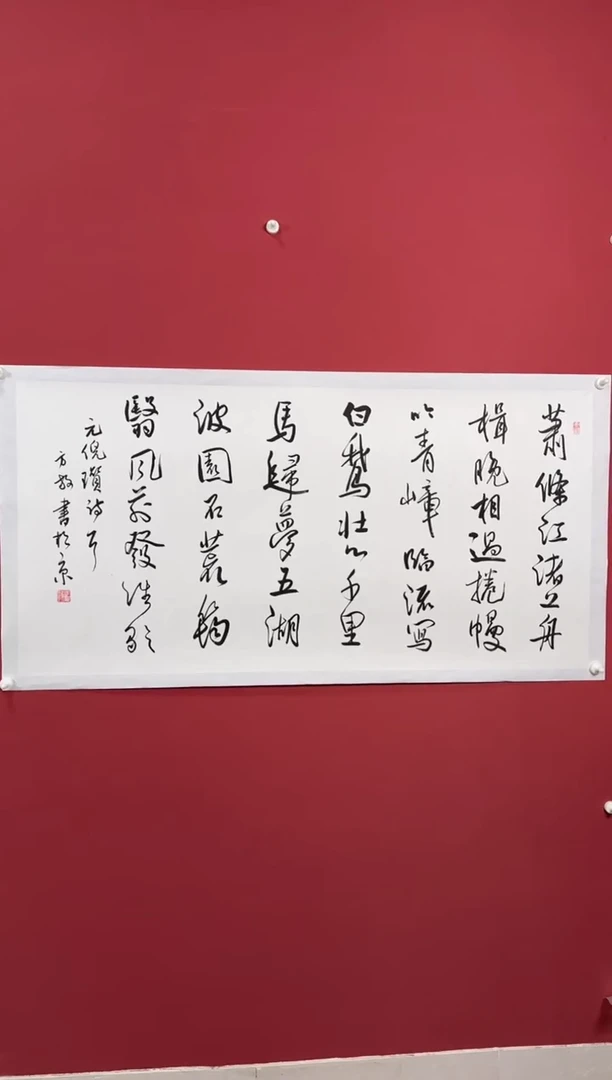 蕭條江渚上舟
楫晚相過捲幔
吟青嶂臨流寫
白鵝壯心千里
馬歸夢五湖
波園石荒筠
翳風前發浩歌
元倪瓚詩
方 書於京